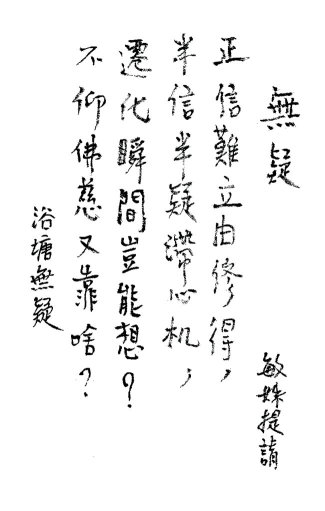 無疑
敏姝提請
正信難立由修得，
半信半疑滯心机，
遷化瞬間豈能想？
不仰佛慈又靠啥？
浴塘無疑